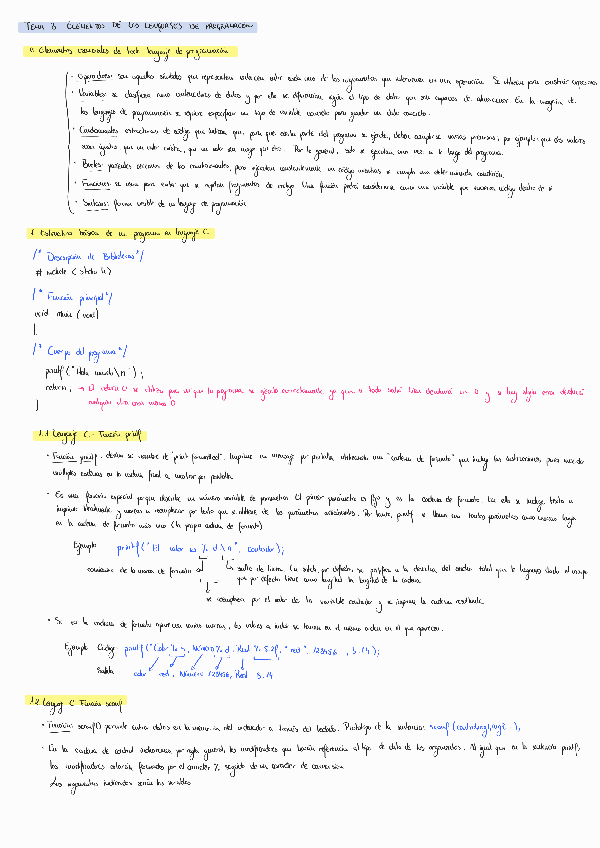 TEMA 3 ELEMENTOS DE LOS LENGUAJES DE PROGRAMACION
Elementos esenciales de todo lenguaje de programación
· Operadores: son aquellos símbolos que representan cada uno de los argumentos que intervienen en una operación. Se utilizan para construir expresiones
· Variables: se clasifican como contenedores de datos y por ello se diferencian según el tipo de dato que son capaces de almacenar. En la mayoría de
los lenguajes de programación se requiere especificar un tipo de variable concreto para guardar un dato concreto.
· Condicionales: estructuras de código que indican que, para que cierta parte del programa se ejecute, deben cumplirse varias premisas, por ejemplo: que dos valores
sean iguales, que un valor exista, que un valor sea mayor que otro... Por lo general, solo se ejecutan una vez a lo largo del programa.
· Bucles: parientes cercanos de los condicionantes, pero ejecutan constantemente un código mientras se cumpla una determinada condición.
· Funciones: se usan para evitar que se repitan fragmentos de código. Una función podría considerarse como una variable que encierra código dentro de si
· Sintaxis: forma visible de un lenguaje de programación
1 Estructura básica de un programa en lenguaje C.
/* Descripción de Bibliotecas */
# include (stdio h)
/* Función principal */
void main (void)
/* Cuerpo del programa */
printf ("Hola mundo\n");
return; → El return 0 se utiliza para ver que la programa se ejecutó correctamente ya que si todo salió bien devolverá un 0 y si hay algún error devolverá
cualquier otra cosa menos 0.
}
1.1 Lenguaje C.- Función printf
· Función printf: deriva su nombre de "print formatted". Imprime un mensaje por pantalla utilizando una "cadena de formato" que incluye las instrucciones para mezclar
múltiples cadenas en la cadena final a mostrar por pantalla.
· Es una función especial porque recibe un número variable de parámetros. El primer parámetro es fijo y es la cadena de formato. En ella se incluye texto a
imprimir literalmente y marcas a reemplazar por texto que se obtiene de los parámetros adicionales. Por tanto, printf se llama con tantos parámetros como marcas haya
en la cadena de formato más uno (la propia cadena de formato)
Ejemplo printf("El valor es % d\n", contador);
comienzo de la marca de formato
salto de línea. La salida, por defecto, se justifica a la derecha del ancho total que le hayamos dado al campo
que por defecto tiene como longitud la longitud de la cadena.
se reemplaza por el valor de la variable contador y se imprime la cadena resultante.
· Si en la cadena de formato aparecen varias marcas, los valores a incluir se toman en el mismo orden en el que aparecen.
Ejemplo Código printf ("Color % s, Número % d, Real % 5.2f", "red", 123456, 3.14);
Salida color red, Número 123456, Real 3.14
1.2 Lenguaje C Función scanf
· Función: scanf() permite entrar datos en la memoria del ordenador a través del teclado. Prototipo de la sentencia: scanf (control,arg1,arg2...);
· En la cadena de control indicaremos, por regla general, los modificadores que harán referencia al tipo de dato de los argumentos. Al igual que en la sentencia printf,
los modificadores estarán formados por el carácter % seguido de un carácter de conversión.
Los argumentos indicados serán las variables.